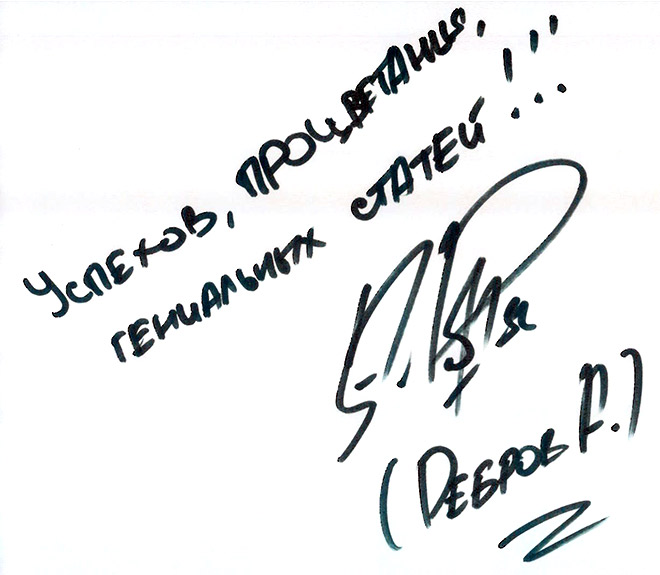 Успехов, процветания,
гениальных статей!!!...
(Дебров А.)